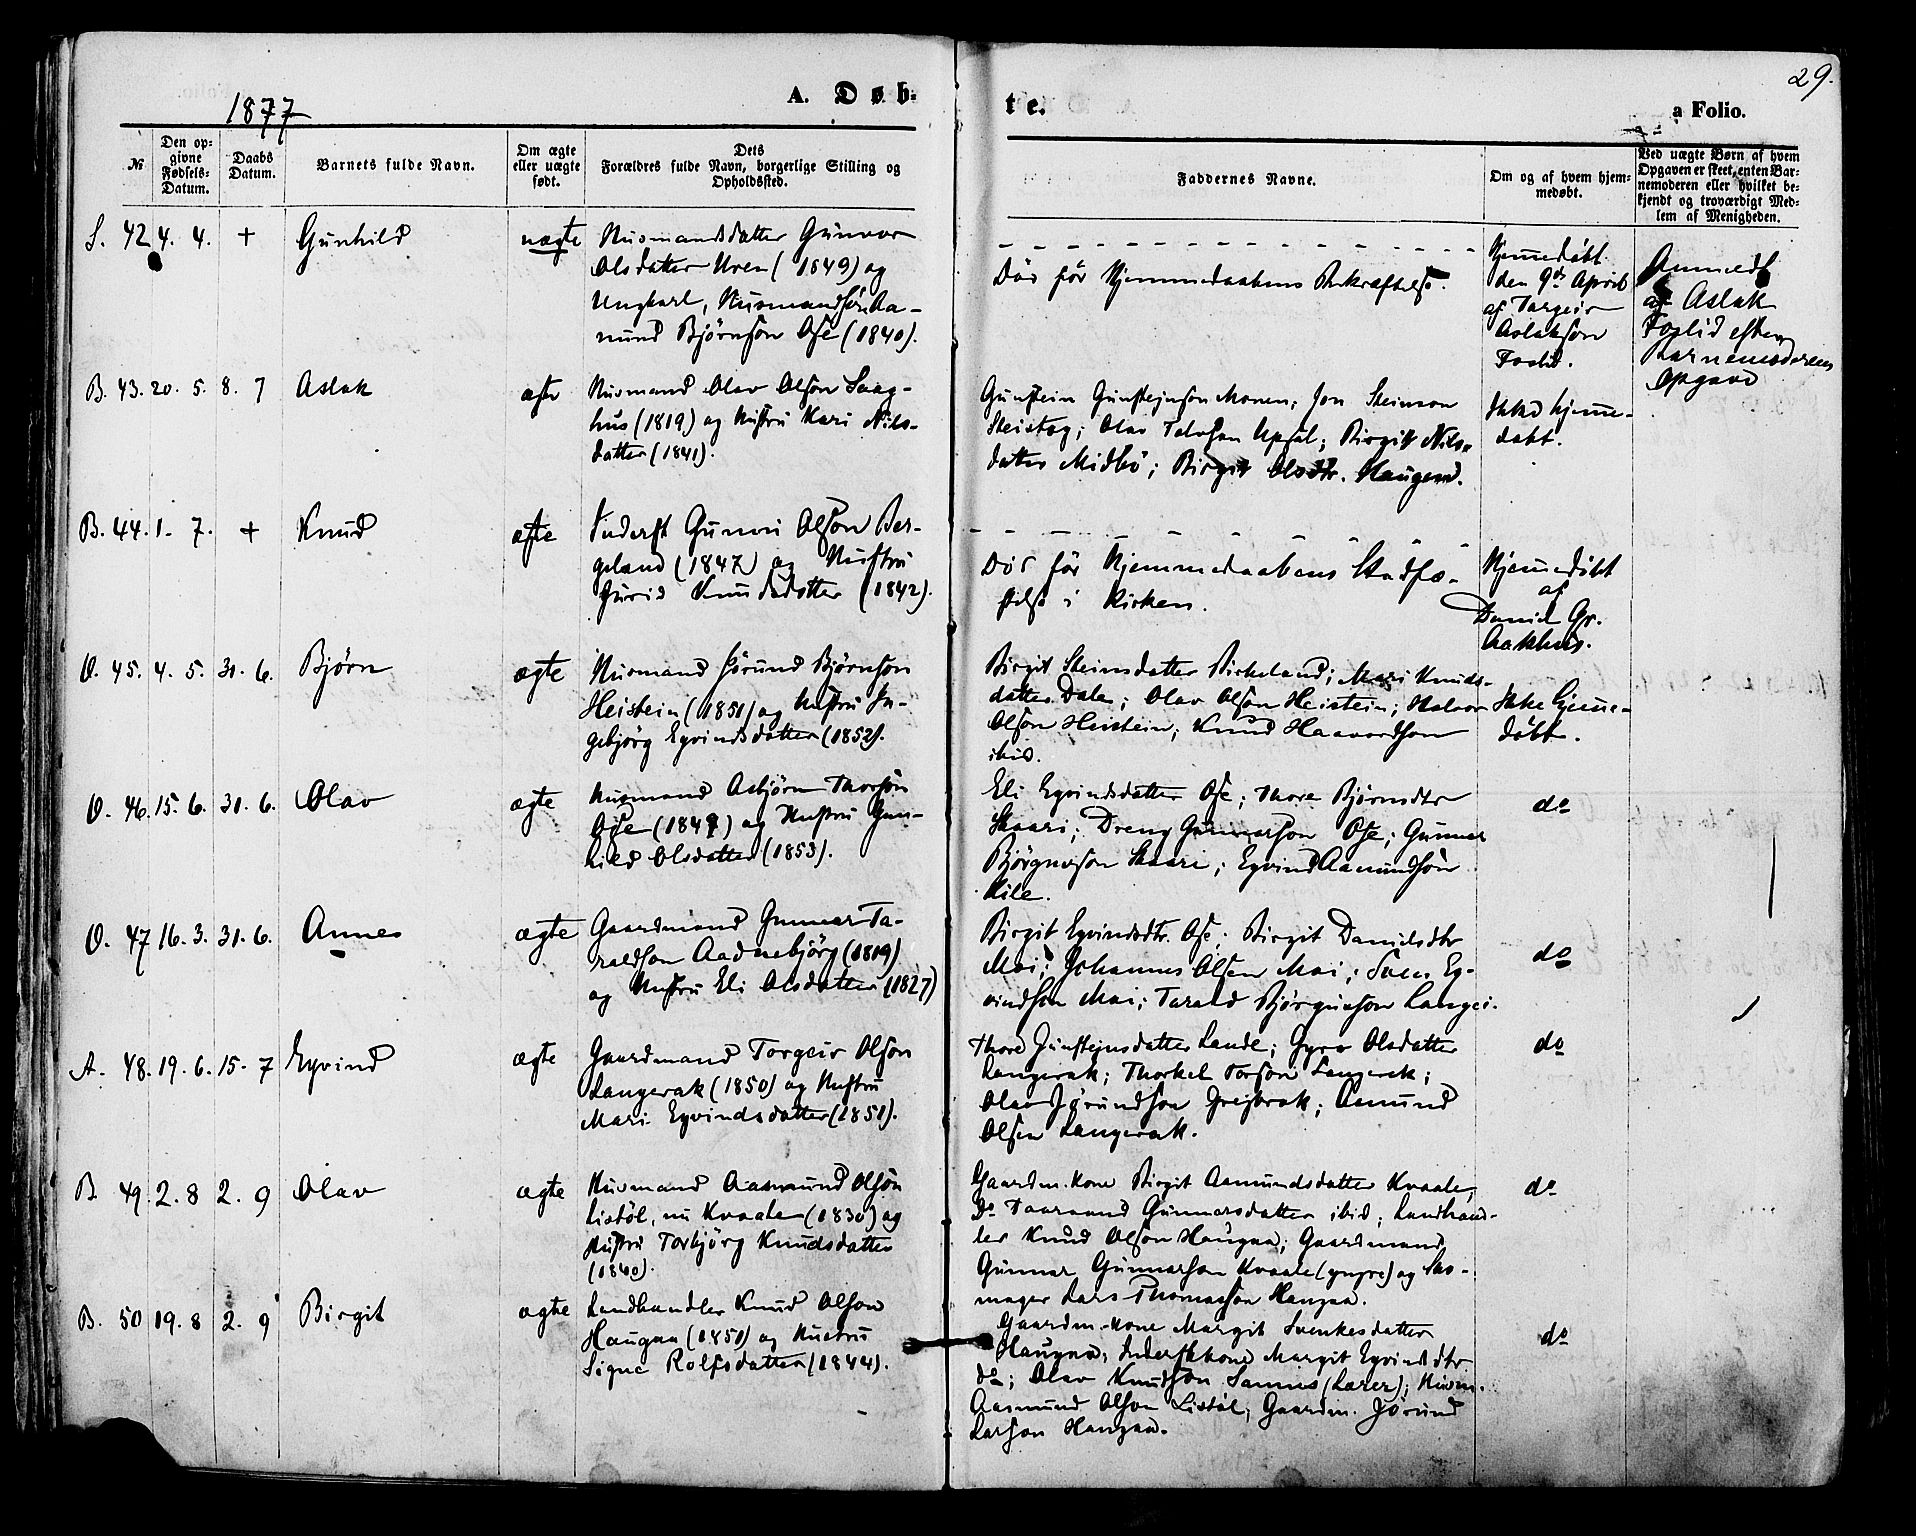 29.
1877
A. Døb-
te.
a Folio.
№
Den op-
givne
Fødsels-
Datum.
Daabs
Datum.
Barnets fulde Navn.
Om ægte
eller uægte
født.
Dets
Forældres fulde Navn, borgerlige Stilling og
Opholdssted.
Faddernes Navne.
Om og af hvem hjem-
medøbt.
Ved uægte Børn af hvem
Opgaven er skeet, enten Bar-
nemoderen eller hvilket be-
kjendt og troværdigt Med-
lem af Menigheden.
S. 42 4. 4. + Gunhild uægte
Husmandsdatter Gunvor
Olsdatter Uren (1849) og
Ungkarl, Husmandssøn Aa-
mund Bjørnson Ose (1840).
Död før Hjemmedaabens Bekræftelse.
Hjemmedøbt
den 9de April
af Targeir
Aslakson
Foslid.
Anmeldt
af Aslak
Foslid efter
Barnemoderens
Opgave
B. 43. 20. 5. 8. 7 Aslak ægte
Husmand Olav Olson Saag-
hus (1819) og Hustru Kari Nils-
datter (1841).
Gunstein Gunsteinson Monen; Jon Steinson
Olav Upstøl; Birgit Nils-
datter Midbö; Birgit Olsdtr. Haugen.
Ikke hjemme-
døbt.
B. 44. 1. 7. + Knud ægte
Inderst Gunvu Olson Ber-
geland (1847) og Hustru
Gurid Knudsdatter (1842).
Död før Hjemmedaabens Stadfæ-
stelse i Kirken.
Hjemmedøbt
af
Daniel Gr.
Aakhus.
O. 45. 4. 5. 31. 6. Bjørn ægte
Husmand Jörund Bjørnson
Heistein (1851) og Hustru In-
gebjörg Eyvindsdatter (1852).
Birgit Steinsdatter Birkeland; Mari Knuds-
datter Dale; Olav Olson Heistein; Halvor
Olson Heistein; Knud Haavordson
ibid.
Ikke hjemme-
døbt.
O. 46. 15. 6. 31. 6. Olav ægte
Husmand Asbjörn Thorson
Ose (1849) og Hustru Gun-
hild Olsdatter (1853).
Eli Eyvindsdatter Ose; Thore Bjørnsdtr
Skaari; Dreng Gunnarson Ose; Gunnar
Björgufson Skaari; Eyvind Aamundson
Kile.
do
O. 47 16. 3. 31. 6. Annes ægte
Gaardmand Gunnar Ta-
raldson Aadnebjörg (1819)
og Hustru Eli Olsdatter (1827)
Birgit Eyvindsdtr. Ose; Birgit Danielsdtr
Moi; Johannes Olsen Moi; Sven Ey-
vindson Moi; Tarald Bjørgufson Langei.
do
A. 48. 19. 6. 15. 7 Eyvind ægte
Gaardmand Torgeir Olson
Langerak (1850) og Hustru
Mari Eyvindsdatter (1851).
Thore Gunsteinsdatter Lande; Gyro Olsdatter
Langerak; Thorkel Torson Langerak;
Olav Jörundson Frøisrak; Aamund
Olsen Langerak.
do
B. 49. 2. 8 2. 9 Olav ægte
Husmand Aasmund Olson
Listöl, nu Kvaale (1830) og
Hustru Torbjörg Knudsdatter
(1840).
Gaardm.kone Birgit Aamundsdatter Kvaale,
Do Taarand Gunnarsdatter ibid; Landhand-
ler Knud Olson Haugaa; Gaardmand
Gunnar Gunnarson Kvaale (yngre) og Sko-
mager Lars Thomasson Haugaa.
do
B. 50 19. 8 2. 9 Birgit ægte
Landhandler Knud Olson
Haugaa (1851) og Hustru
Signe Rolfsdatter (1844).
Gaardm.kone Margit Svenkesdatter
Haugaa; Inderstkone Margit Eyvindsdtr
do; Olav Knudson Sannes (Lærer); Husm.
Aasmund Olson Listöl; Gaardm. Jörund
Larson Haugaa.
do